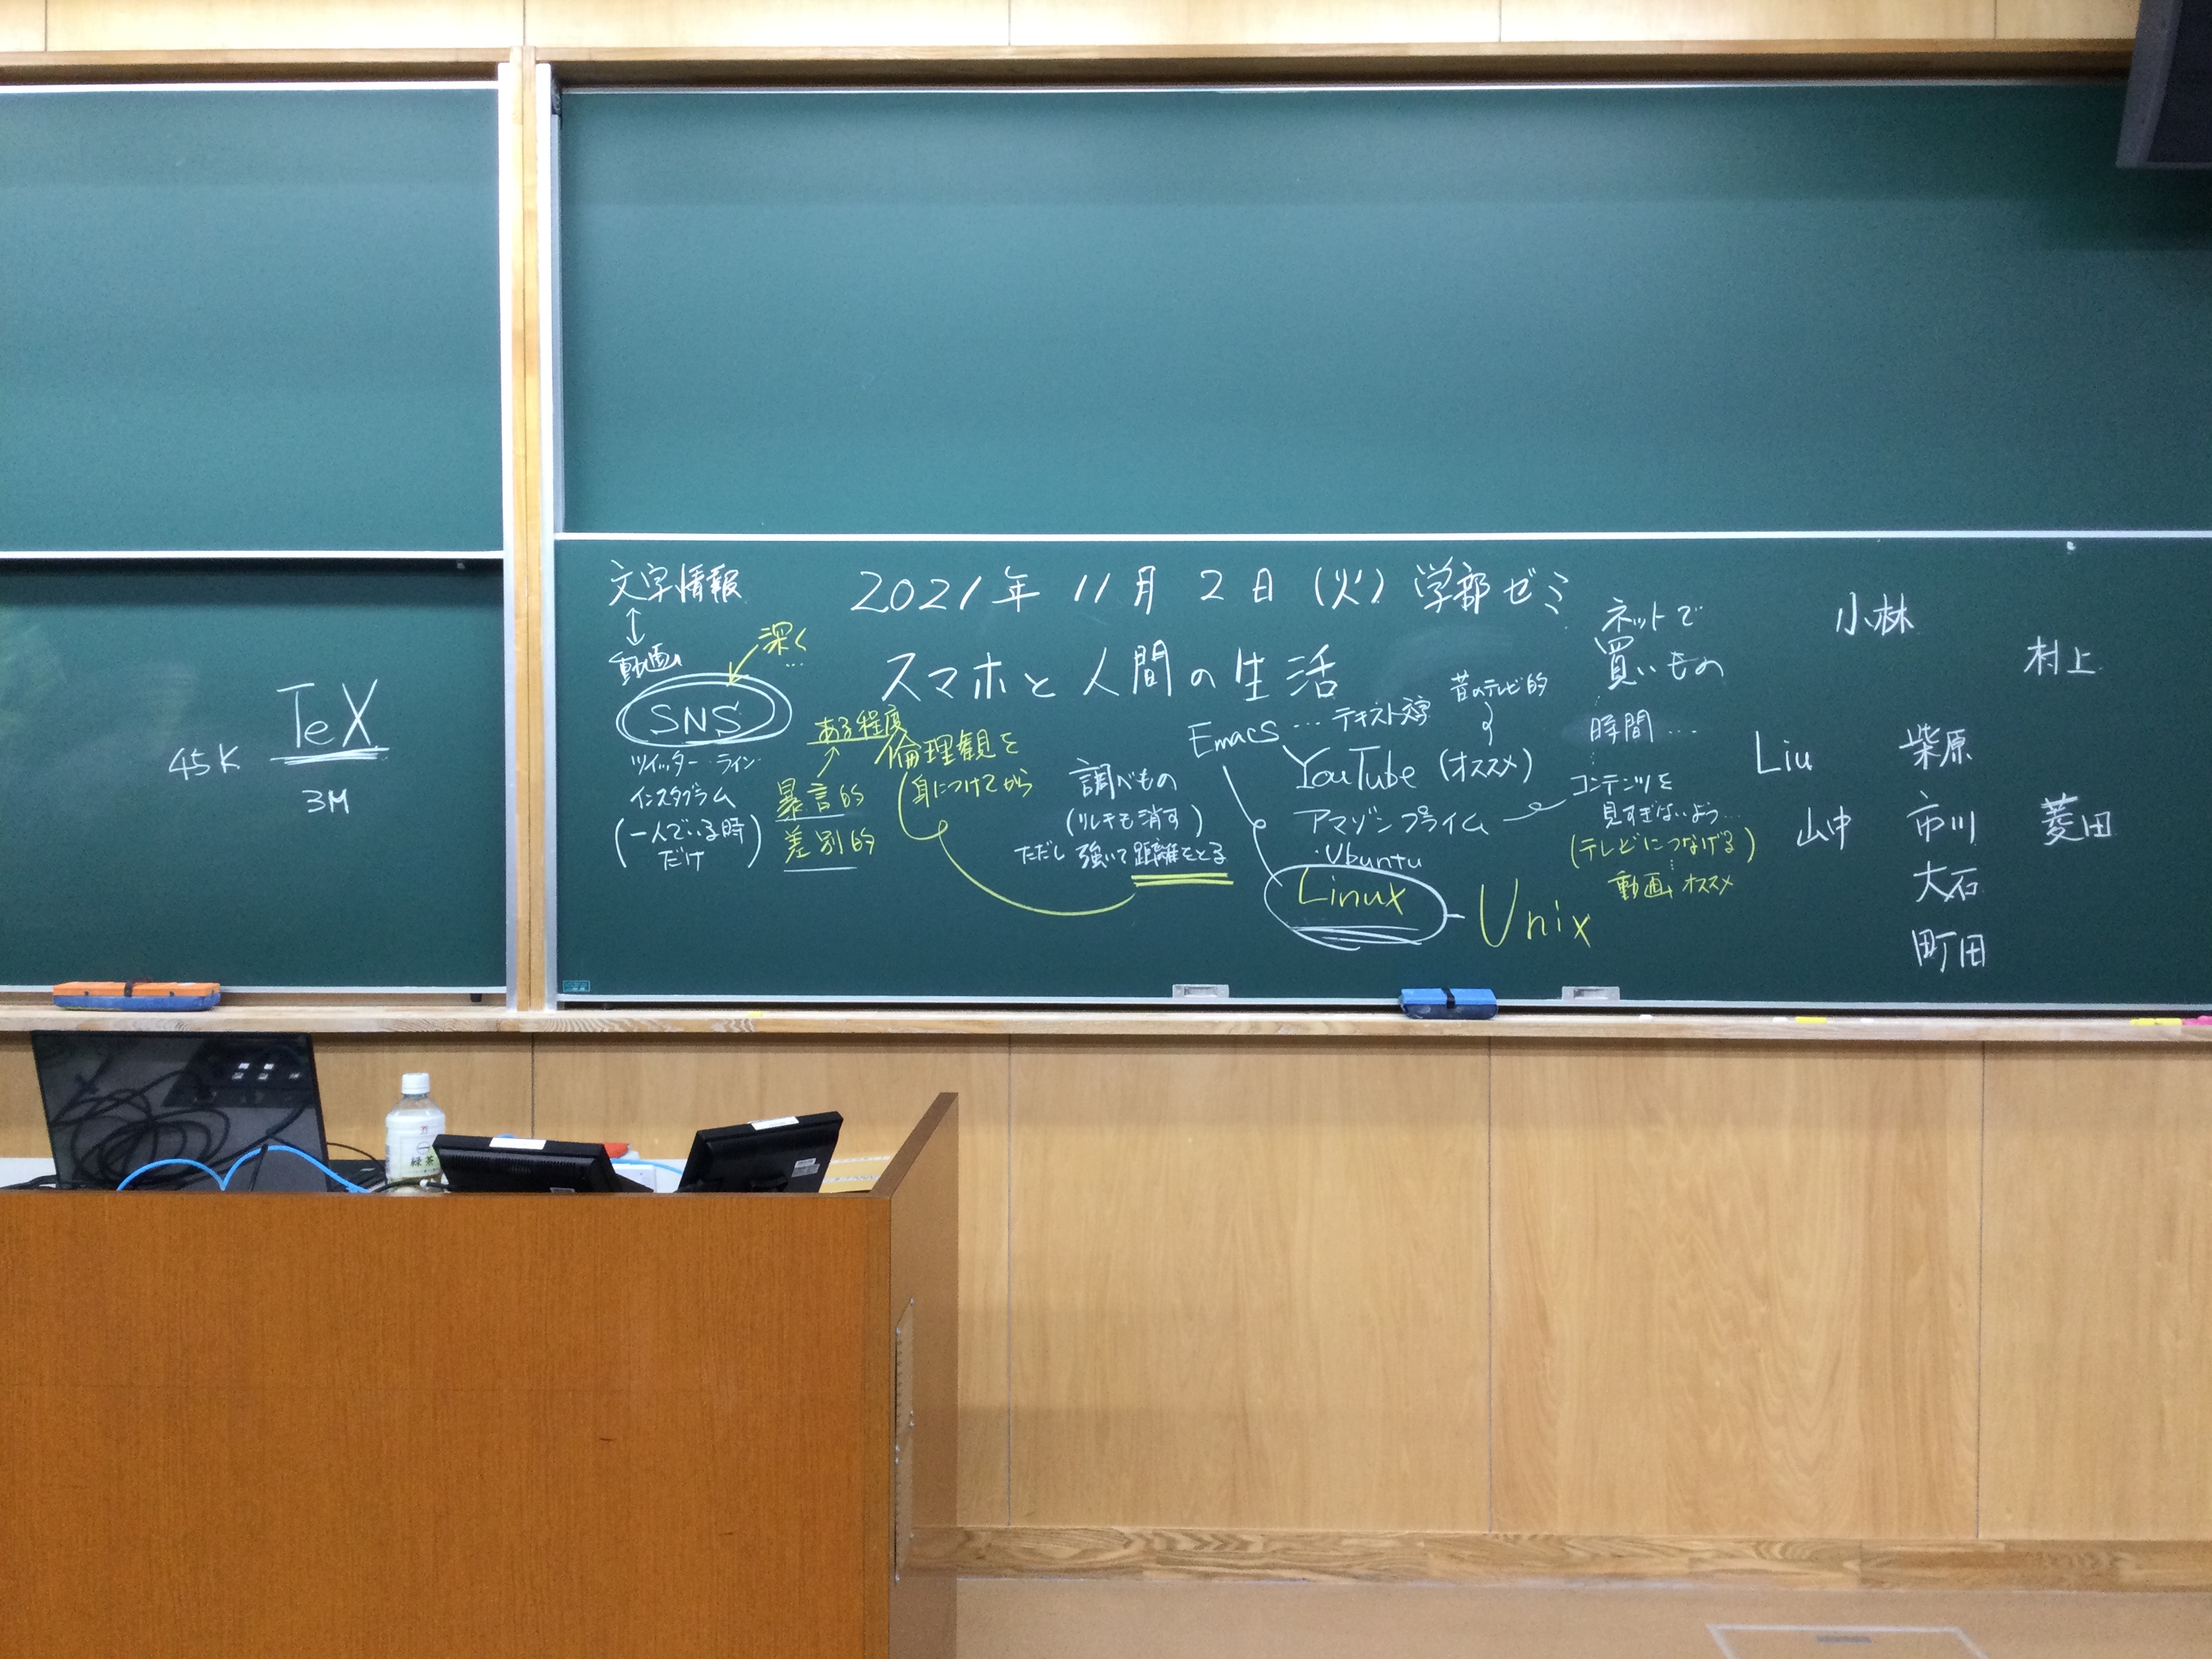 TeX
45K
3M
文字情報
動画
深く…
SNS
ツイッター・ライン
インスタグラム
(一人でいる時
だけ)
2021年 11月 2日 (火) 学部ゼミ
スマホと人間の生活
ある程度
倫理観を
身につけてから
暴言的
差別的
調べもの
ただし 強いて距離をとる
Emacs … テキスト
昔のテレビ的
YouTube (オススメ)
アマゾンプライム
・Ubuntu
Linux
Unix
ネットで
買いもの
時間…
コンテンツを
見すぎないよう…
(テレビにつなげる)
動画 オススメ
小林
村上
Liu
柴原
山中
市川
菱田
大石
町田
緑茶